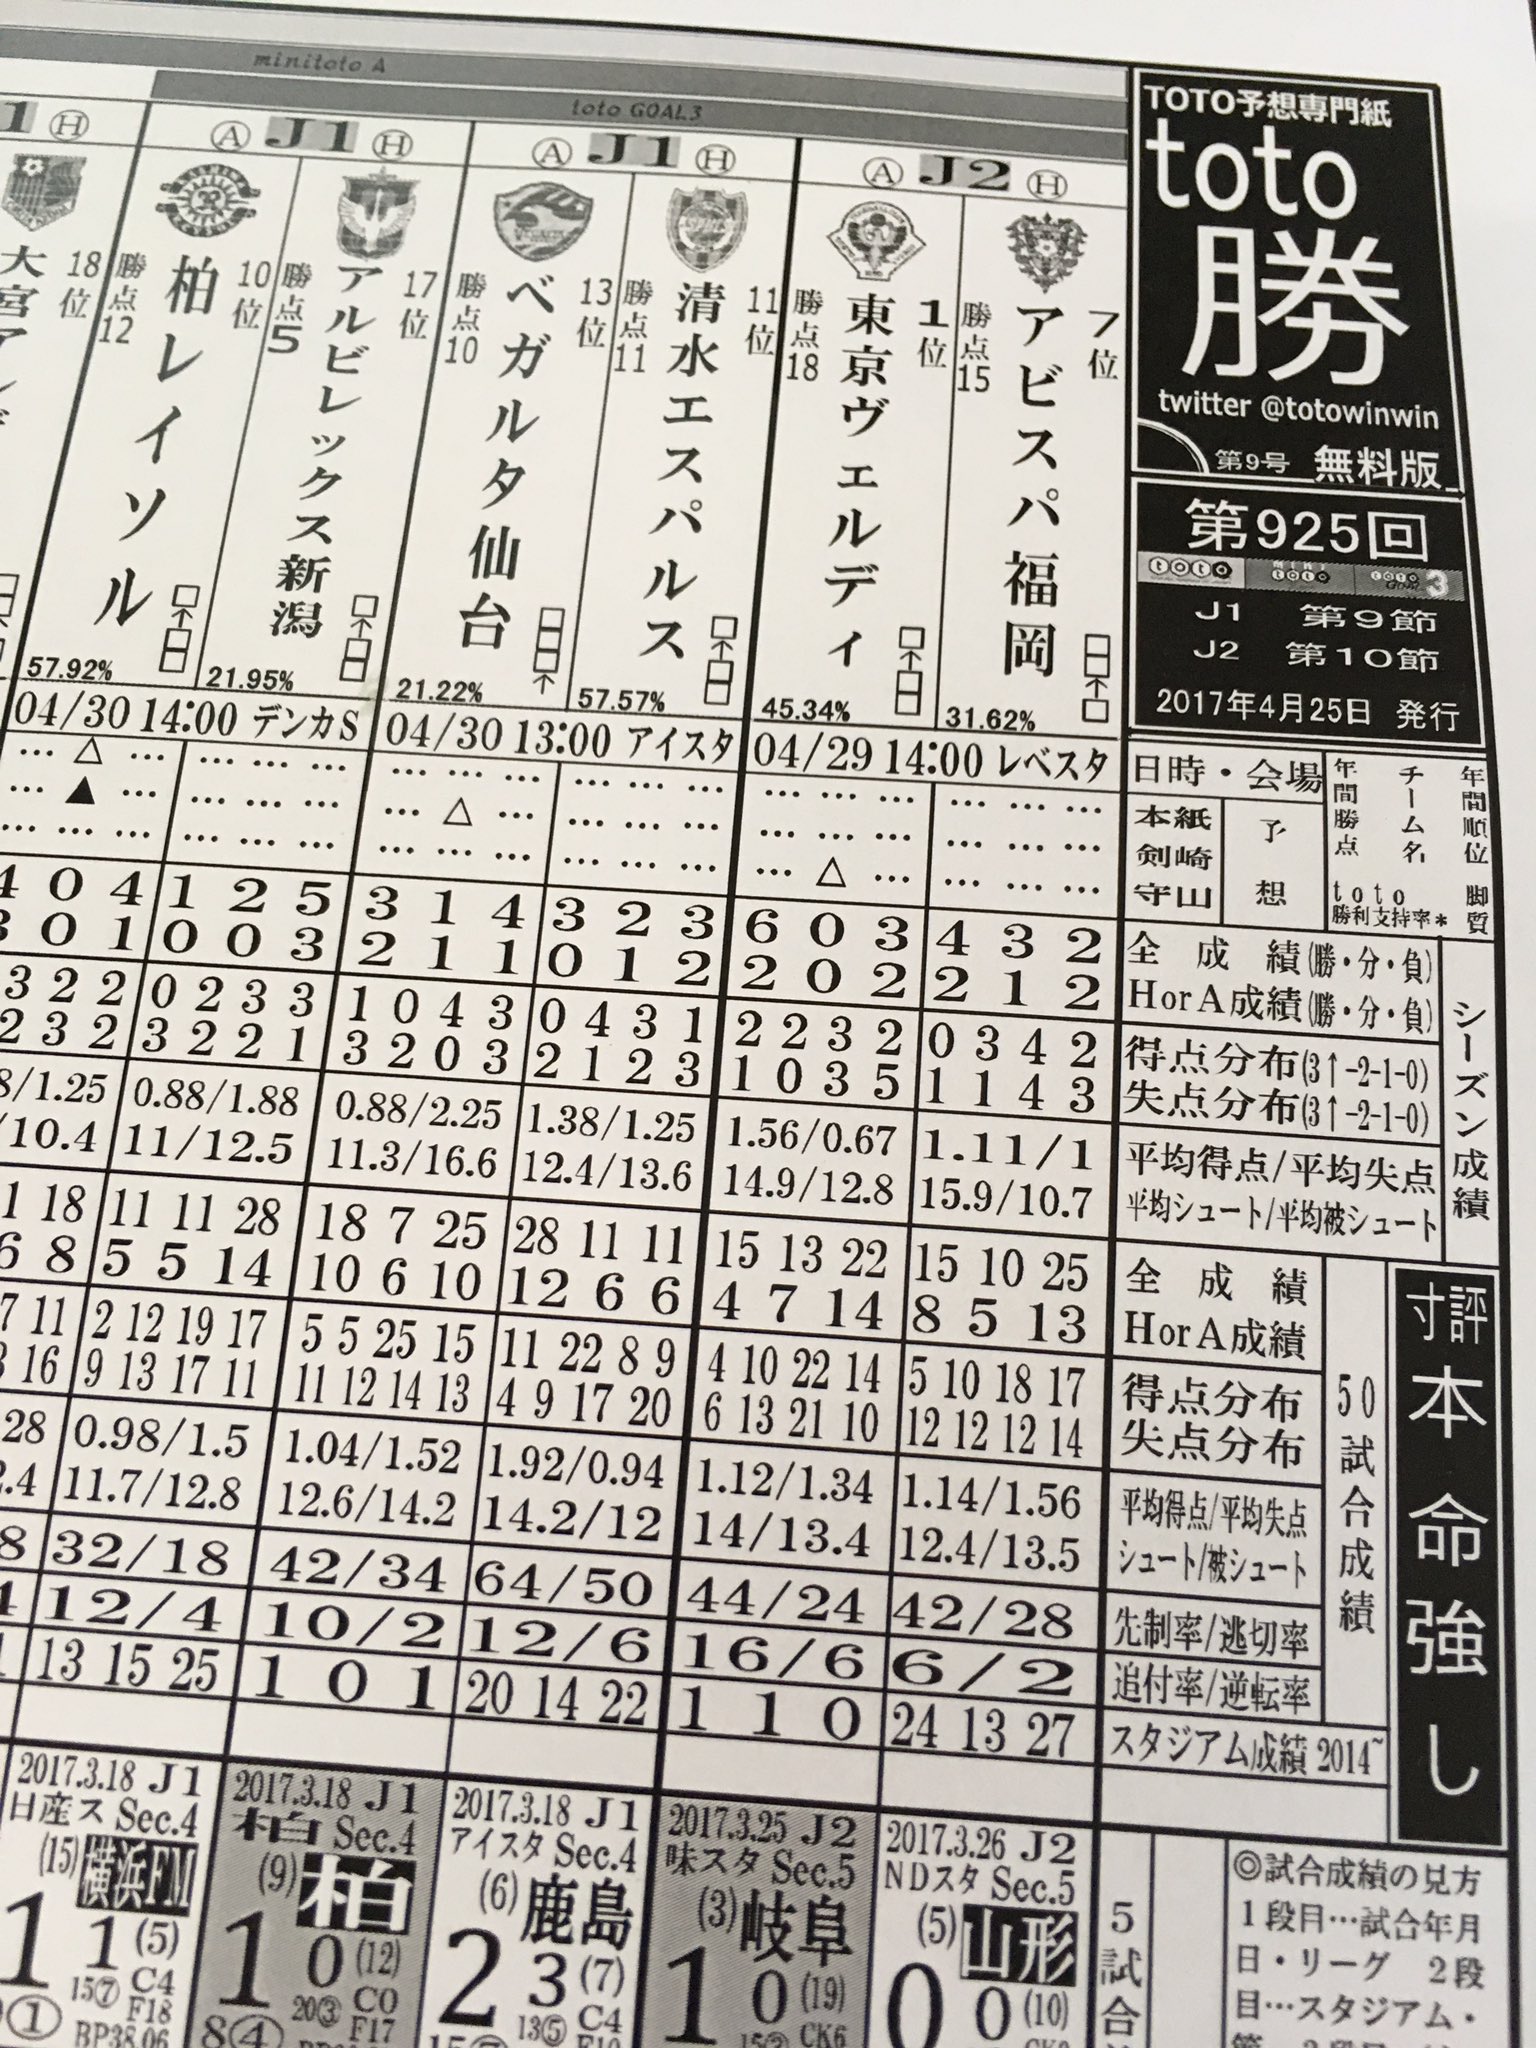 minitoto A
toto GOAL3
TOTO予想専門紙
toto
勝
twitter @totowinwin
第9号 無料版
第925回
toto MINI toto toto GOAL 3
J1 第9節
J2 第10節
2017年4月25日 発行
Ⓐ J2 Ⓗ
7位
アビスパ福岡
勝点15
31.62%
1位
東京ヴェルディ
勝点18
45.34%
04/29 14:00 レベスタ
Ⓐ J1 Ⓗ
11位
清水エスパルス
勝点11
57.57%
13位
ベガルタ仙台
勝点10
21.22%
04/30 13:00 アイスタ
Ⓐ J1 Ⓗ
17位
アルビレックス新潟
勝点5
21.95%
10位
柏レイソル
勝点12
57.92%
04/30 14:00 デンカS
1 Ⓗ
18位
日時・会場
年間順位
チーム名
年間勝点
脚質
toto
勝利支持率*
本紙
剣崎
守山
予想
… △ … … … … … … … … … … … … … … … …
… ▲ … … … … … △ … … … … … … … … … …
… … … … … … … … … … … … … △ … … … …
4 0 4 1 2 5 3 1 4 3 2 3 6 0 3 4 3 2 全成績(勝・分・負)
3 0 1 0 0 3 2 1 1 0 1 2 2 0 2 2 1 2 HorA成績(勝・分・負)
3 2 2 0 2 3 3 1 0 4 3 0 4 3 1 2 2 3 2 0 3 4 2 得点分布(3↑-2-1-0)
2 3 2 3 2 2 1 3 2 0 3 2 1 2 3 1 0 3 5 1 1 4 3 失点分布(3↑-2-1-0)
/1.25 0.88/1.88 0.88/2.25 1.38/1.25 1.56/0.67 1.11/1 平均得点/平均失点
/10.4 11/12.5 11.3/16.6 12.4/13.6 14.9/12.8 15.9/10.7 平均シュート/平均被シュート
シーズン成績
18 11 11 28 18 7 25 28 11 11 15 13 22 15 10 25 全成績
8 5 5 14 10 6 10 12 6 6 4 7 14 8 5 13 HorA成績
11 2 12 19 17 5 5 25 15 11 22 8 9 4 10 22 14 5 10 18 17 得点分布
16 9 13 17 11 11 12 14 13 4 9 17 20 6 13 21 10 12 12 12 14 失点分布
28 0.98/1.5 1.04/1.52 1.92/0.94 1.12/1.34 1.14/1.56 平均得点/平均失点
11.7/12.8 12.6/14.2 14.2/12 14/13.4 12.4/13.5 シュート/被シュート
32/18 42/34 64/50 44/24 42/28 先制率/逃切率
12/4 10/2 12/6 16/6 6/2 追付率/逆転率
50試合成績
13 15 25 1 0 1 20 14 22 1 1 0 24 13 27 スタジアム成績 2014~
寸評
本命強し
2017.3.18 J1 2017.3.18 J1 2017.3.18 J1 2017.3.25 J2 2017.3.26 J2
日産ス Sec.4 柏 Sec.4 アイスタ Sec.4 味スタ Sec.5 NDスタ Sec.5
(15) 横浜FM (9) 柏 (6) 鹿島 (3) 岐阜 (5) 山形
1 1 (5) 1 0 (12) 2 3 (7) 1 0 (19) 0 0 (10)
15⑦ C4 20③ C0 13⑤ C4 CK6
① F18 8④ F17
BP38.06
5試合
◎試合成績の見方
1段目…試合年月
日・リーグ 2段
目…スタジアム・